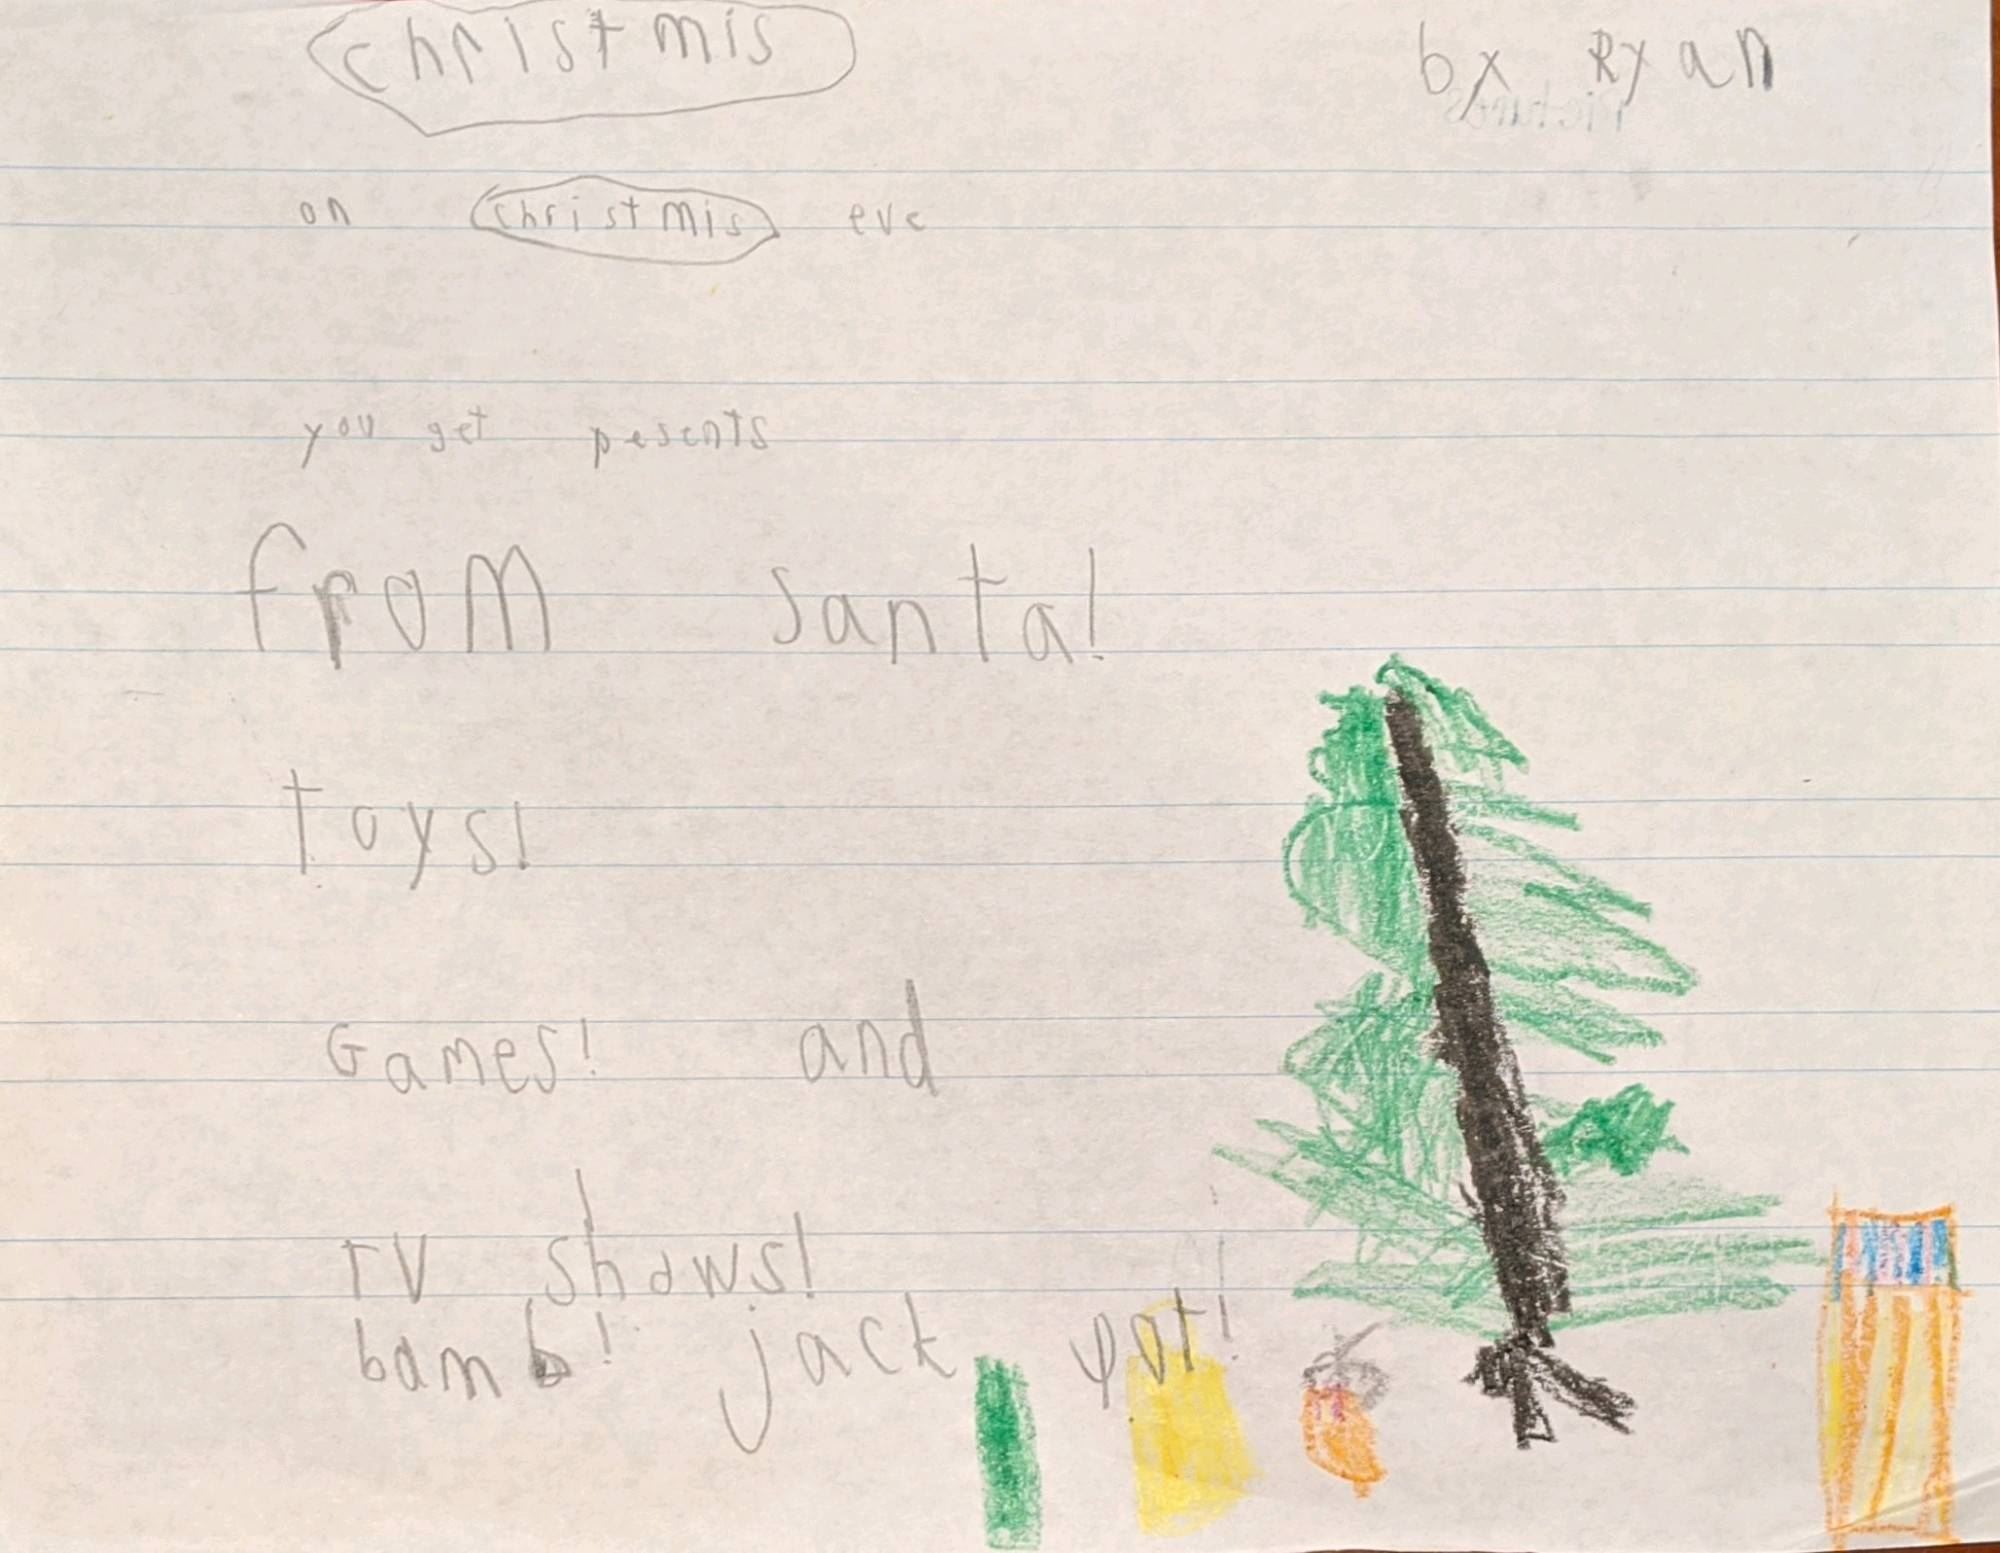 christmis by Ryan
Pictures
on christmis eve
you get pesents
from santa!
toys!
Games! and
TV shows!
bomb! jack pot!